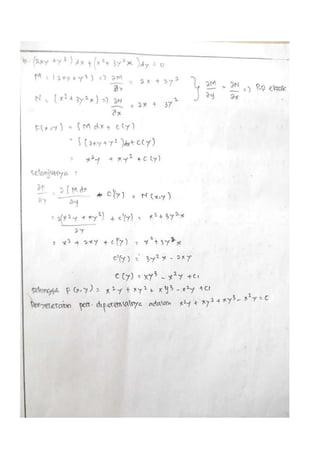 b. (2xy + y³) dx + (x² + 3y²x) dy = 0
M = (2xy + y³) => ∂M/∂x = 2x + 3y² } ∂M/∂y = ∂N/∂x => PD eksak
N = (x² + 3y²x) => ∂N/∂x = 2x + 3y²
F(x,y) = ∫M dx + c(y)
= ∫(2xy + y²) dx + c(y)
= x²y + xy² + c(y)
Selanjutnya :
∂F/∂y = ∂∫M dx/∂y + c'(y) = N(x,y)
= ∂(x²y + xy²)/∂y + c'(y) = x² + 3y²x
= x² + 2xy + c'(y) = x² + 3y²x
c'(y) = 3y²x - 2xy
c(y) = xy³ - x²y + c₁
Sehingga F(x,y) = x²y + xy² + xy³ - x²y + c₁
Penyelesaian pers. diferensialnya adalah x²y + xy² + xy³ - x²y = c